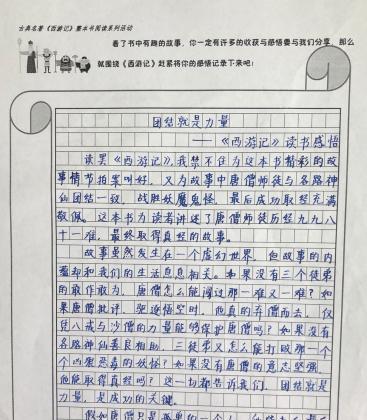 古典名著《西游记》整本书阅读系列活动
看了书中有趣的故事，你一定有许多的收获与感悟要与我们分享，那么
就围绕《西游记》赶紧将你的感悟记录下来吧！
团结就是力量
——《西游记》读书感悟
读罢《西游记》，我禁不住为这本书精彩的故
事情节拍案叫好，又为故事中唐僧师徒与各路神
仙团结一致，战胜妖魔鬼怪，最后成功取经充满
敬佩。这本书为读者讲述了唐僧师徒历经九九八
十一难，最终取得真经的故事。
故事虽然发生在一个虚幻世界，但故事的内
蕴却和我们的生活息息相关。如果没有三个徒弟
的敢作敢为，唐僧怎么能闯过那一难又一难？如
果唐僧批评、驱逐悟空时，他真的弃僧而去，仅
凭八戒与沙僧的力量能够保护唐僧吗？如果没有
各路神仙鼎良相助，三徒弟又怎么能打败那一个
个凶狠恶毒的妖怪？如果没有唐僧的意志坚强，
他能取得真经吗？这一切都告诉我们，团结就是
力量，是成功的关键。
假如唐僧只是孤单的一个人，